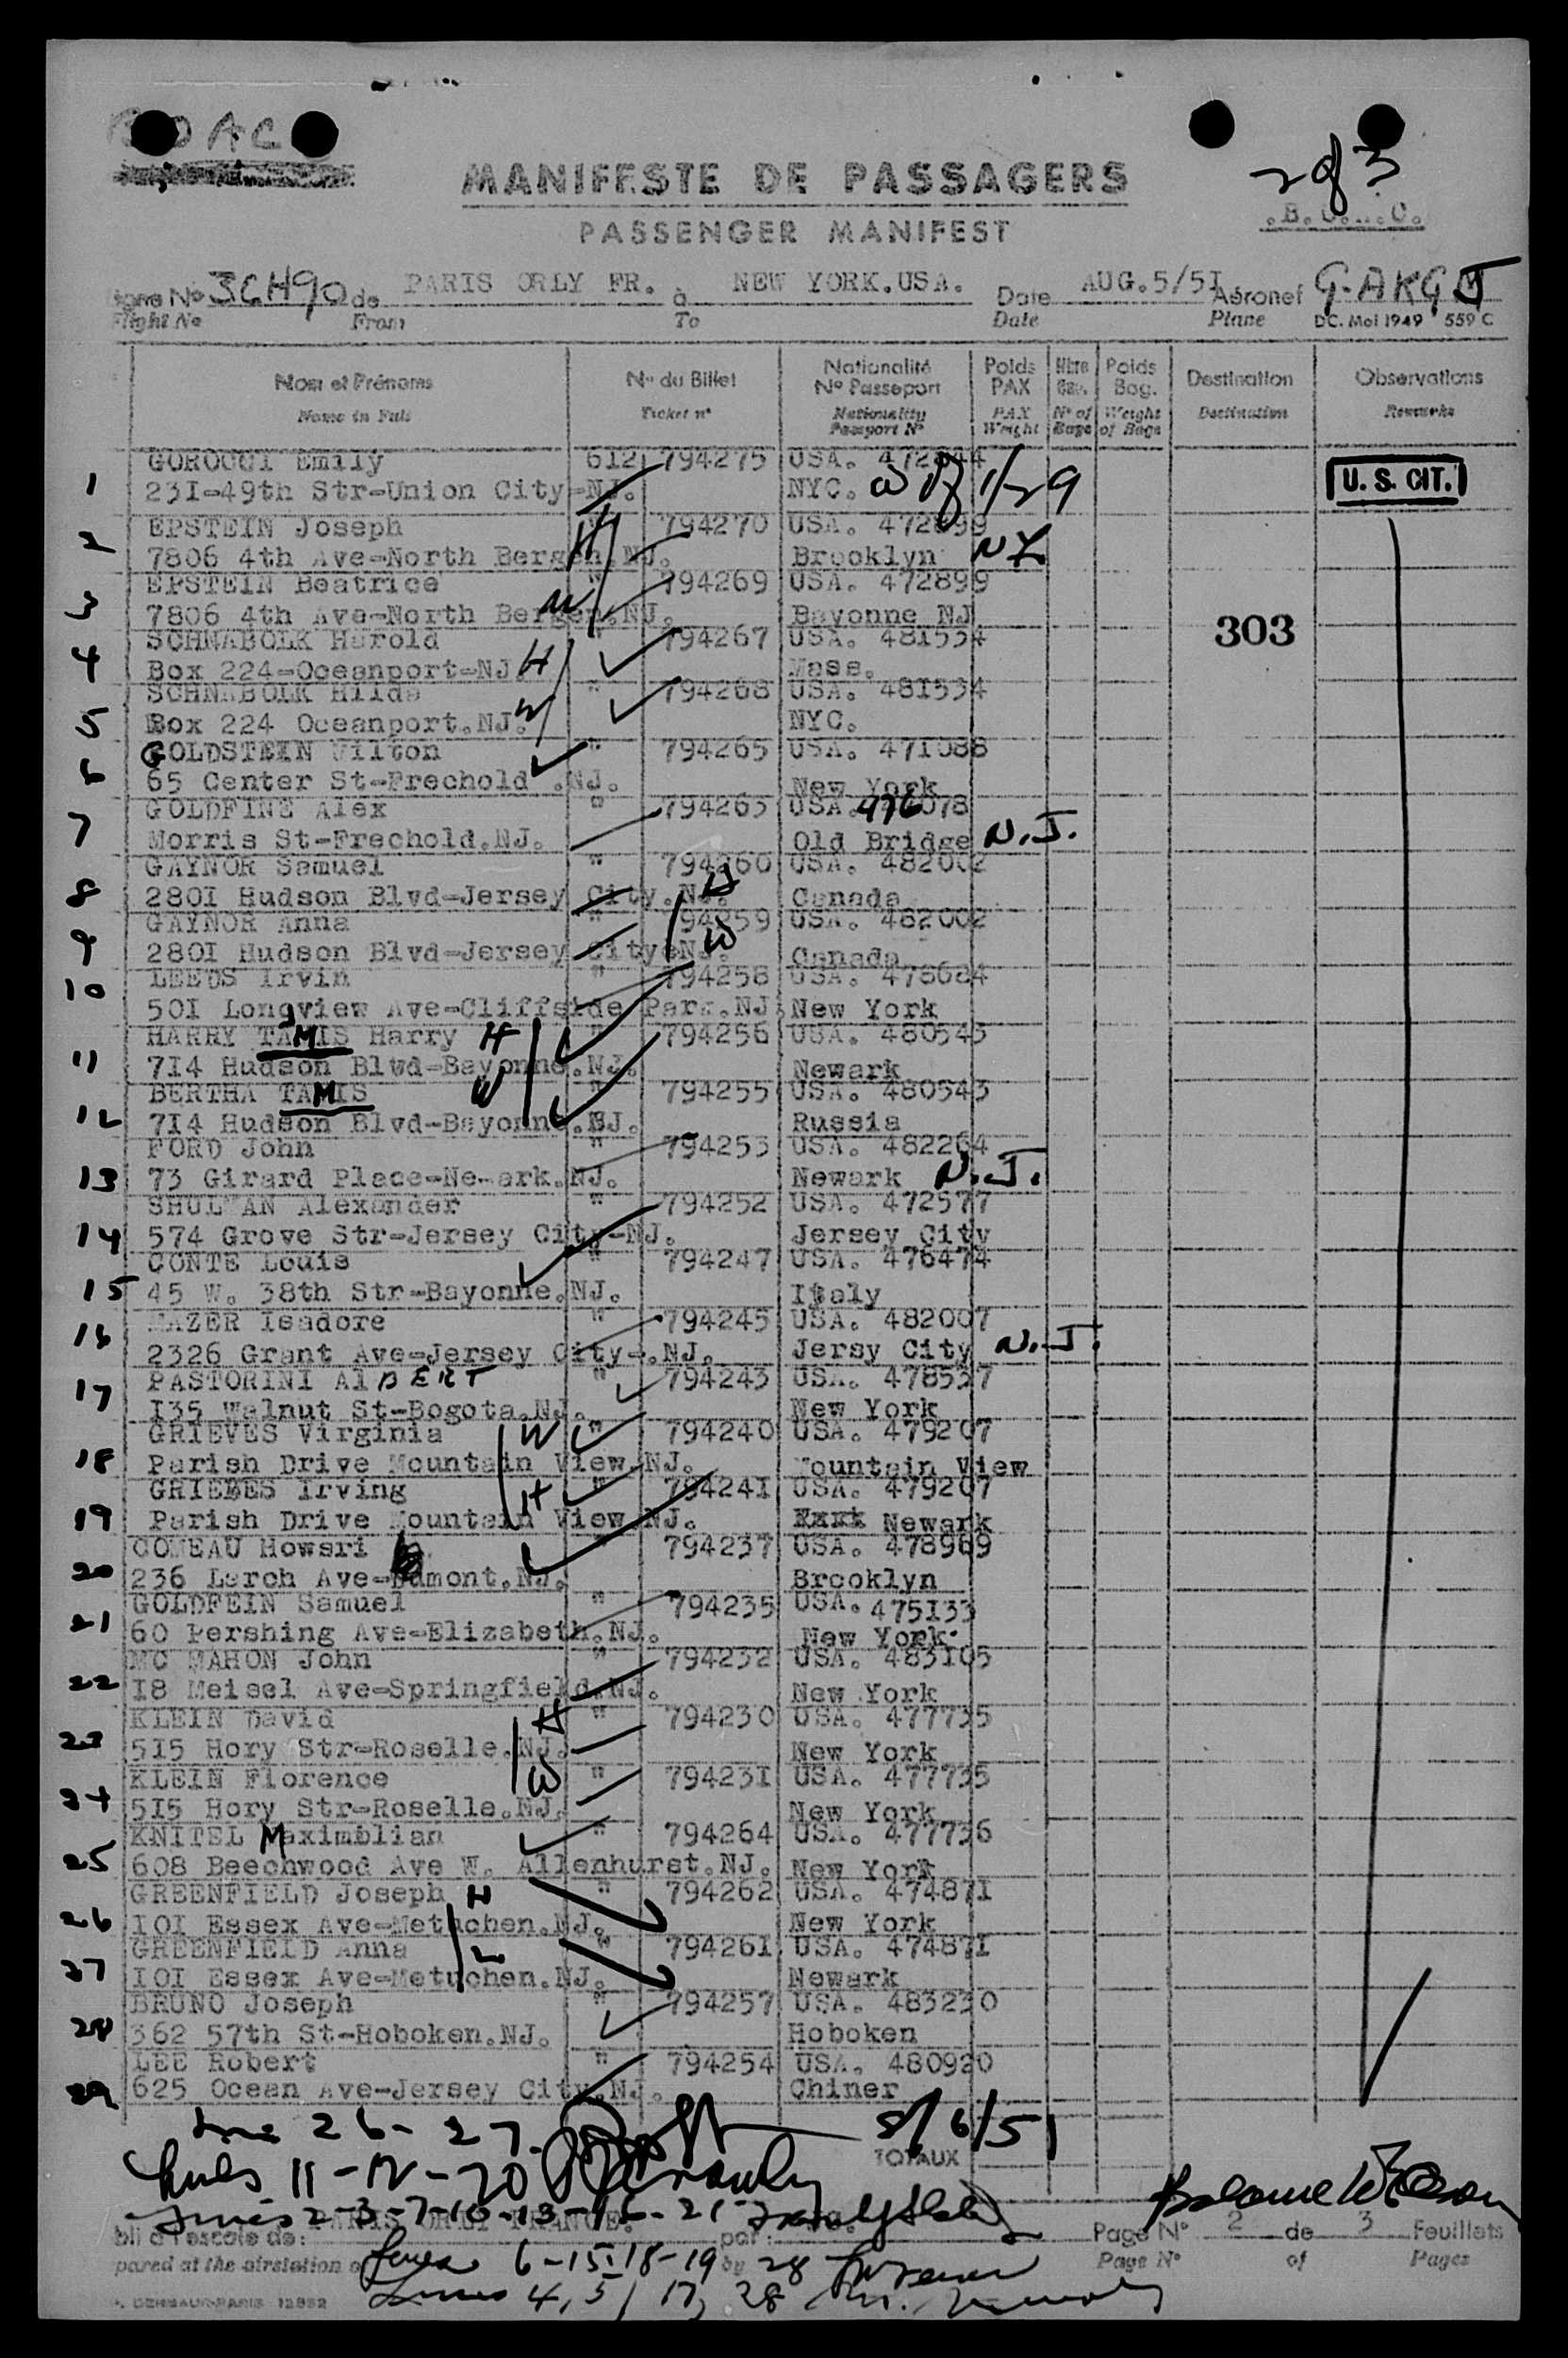 MANIFESTE DE PASSAGERS
2 of 3
PASSENGER MANIFEST
3CH90 de PARIS ORLY FR. à NEW YORK.USA. Date AUG.5/5I Aéronef G-AKGJ
Flight No From To Date Plane DC. Mai 1949 559 C
Nom et Prénoms No du Billet Nationalité No Passeport Poids PAX Poids Bag. Destination Observations
Name in Full Ticket no Nationality Passport No PAX Weight No of Bags Weight of Bags Destination Remarks
GOROCCI Emily 612 794275 USA.
1 23I-49th Str-Union City-NJ. NYC. 1/29 U. S. CIT.
EPSTEIN Joseph 794270 USA. 472899
2 7806 4th Ave-North Bergen.NJ. Brooklyn N.Y.
EPSTEIN Beatrice " 794269 USA. 472899
3 7806 4th Ave-North Bergen.NJ. W Bayonne NJ 303
SCHNABOLK Harold " 794267 USA. 481534
4 Box 224-Oceanport-NJ H Mass.
SCHNABOLK Hilda " 794268 USA. 48I534
5 Box 224 Oceanport.NJ. W NYC.
GOLDSTEIN Wilton " 794265 USA. 471088
6 65 Center St-Frechold .NJ. New York
GOLDFINE Alex " 794263 USA. 476078
7 Morris St-Frechold.NJ. Old Bridge N.J.
GAYNOR Samuel " 794260 USA. 482002
8 280I Hudson Blvd-Jersey City.NJ. H Canada
GAYNOR Anna " 794259 USA. 482002
9 280I Hudson Blvd-Jersey City.NJ. W Canada
LEEDS Irvin " 794258 USA. 478684
10 50I Longview Ave-Cliffside Park.NJ New York
HARRY TAMIS Harry H " 794256 USA. 480543
11 7I4 Hudson Blvd-Bayonne.NJ. Newark
BERTHA TAMIS W " 794255 USA. 480543
12 7I4 Hudson Blvd-Bayonne.NJ. Russia
FORD John " 794253 USA. 482264
13 73 Girard Place-Ne-ark.NJ. Newark N.J.
SHULMAN Alexander " 794252 USA. 472577
14 574 Grove Str-Jersey City-NJ. Jersey City
CONTE Louis " 794247 USA. 476474
15 45 W. 38th Str-Bayonne.NJ. Italy
MAZER Isadore 794245 USA. 482007
16 2326 Grant Ave-Jersey City-.NJ. Jersy City N.J.
PASTORINI AlBERT " 794243 USA. 478537
17 I35 Walnut St-Bogota.NJ. New York
GRIEVES Virginia W " 794240 USA. 479207
18 Parish Drive Mountain View.NJ. Mountain View
GRIEBES Irving H " 79424I USA. 479207
19 Parish Drive Mountain View NJ. Newark
COMEAU Howsri " 794237 USA. 478969
20 236 Larch Ave-Dumont.NJ. Brooklyn
GOLDFEIN Samuel " 794235 USA. 475I33
21 60 Pershing Ave-Elizabeth.NJ. New York.
MC MAHON John " 794232 USA. 483I05
22 I8 Meisel Ave-Springfield.NJ. New York
KLEIN David H " 794230 USA. 477735
23 5I5 Hory Str-Roselle.NJ. New York
KLEIN Florence W " 79423I USA. 477735
24 5I5 Hory Str-Roselle.NJ. New York
KNITEL Maximblian " 794264 USA. 477736
25 608 Beechwood Ave W. Allenhurst.NJ. New York
GREENFIELD Joseph H " 794262 USA. 47487I
26 I0I Essex Ave-Metuchen.NJ. New York
GREENFIELD Anna W " 79426I USA. 47487I
27 I0I Essex Ave-Metuchen.NJ. Newark
BRUNO Joseph " 794257 USA. 483230
28 362 57th St-Hoboken.NJ. Hoboken
LEE Robert " 794254 USA. 480920
29 625 Ocean Ave-Jersey City.NJ. Chiner
26-27 8/6/51
TOTAUX
Lines 11-12-20
Lines 2-3-7-10-13-16-21
PARIS ORLY FRANCE. par: Page No 2 de 3 Feuillets
pared at the airstation of by Page No of Pages
Lines 6-15-18-19 28
Lines 4, 5, 17, 28